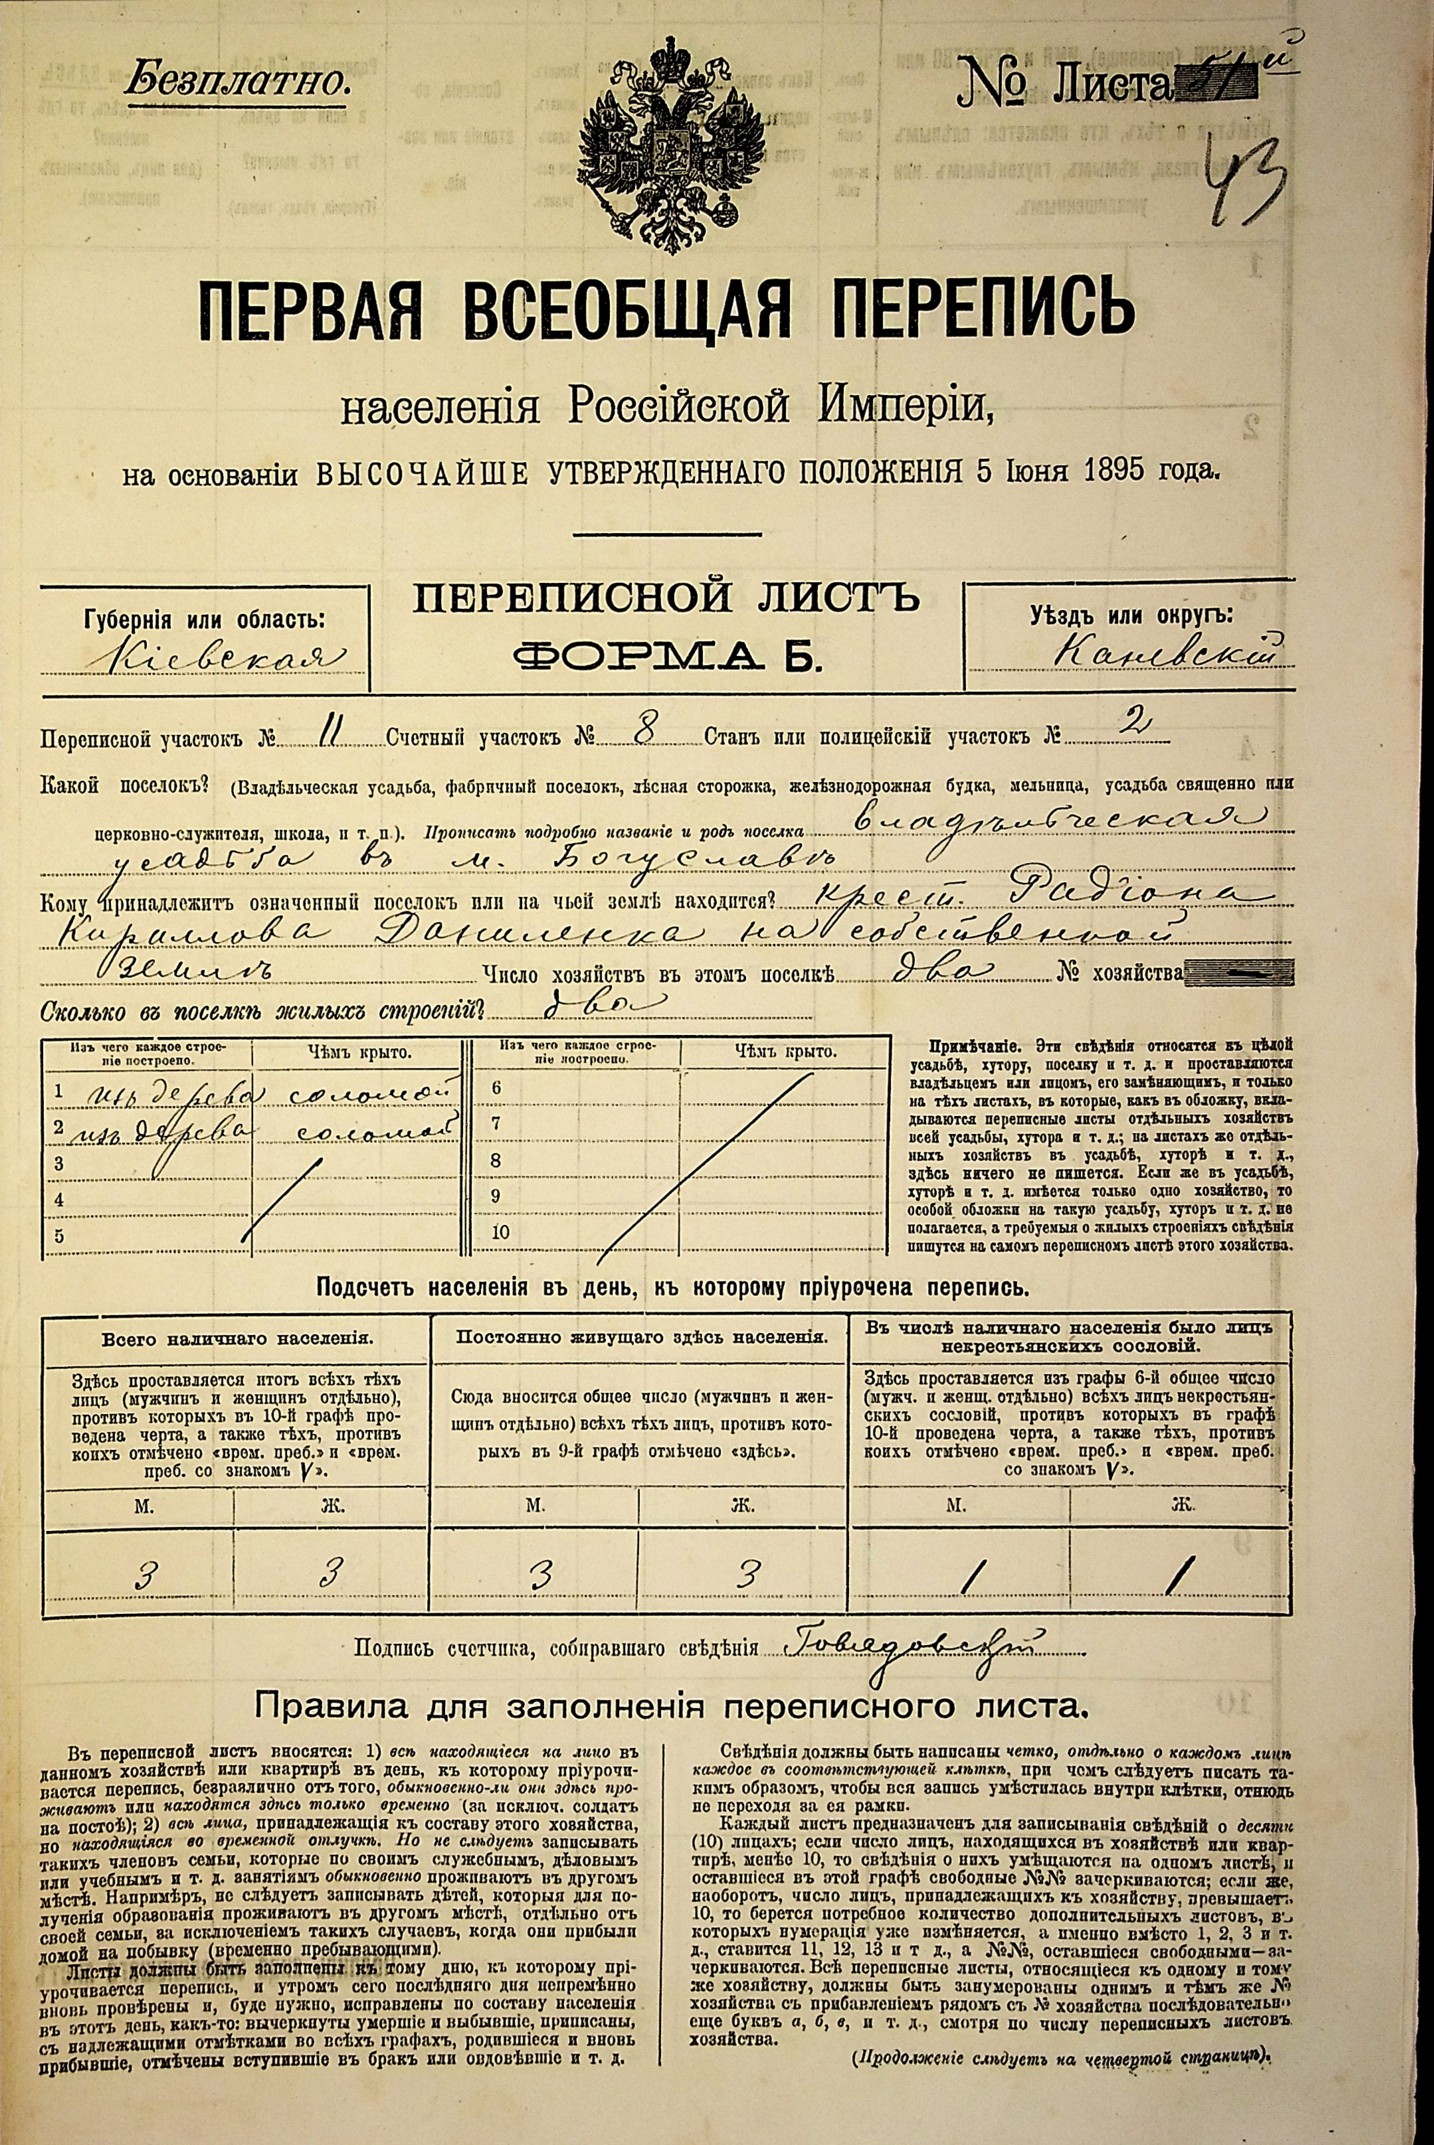 Безплатно.
№ Листа 51й
43
ПЕРВАЯ ВСЕОБЩАЯ ПЕРЕПИСЬ
населенія Россійской Имперіи,
на основаніи ВЫСОЧАЙШЕ УТВЕРЖДЕННАГО ПОЛОЖЕНІЯ 5 Іюня 1895 года.
Губернія или область:
Кіевская
ПЕРЕПИСНОЙ ЛИСТЪ
ФОРМА Б.
Уѣздъ или округъ:
Каневскій
Переписной участокъ № 11 Счетный участокъ № 8 Станъ или полицейскій участокъ № 2
Какой поселокъ? (Владѣльческая усадьба, фабричный поселокъ, лѣсная сторожка, желѣзнодорожная будка, мельница, усадьба священно или
церковно-служителя, школа, и т. п.). Прописать подробно названіе и родъ поселка владѣльческая
усадьба въ м. Богуславѣ
Кому принадлежитъ означенный поселокъ или на чьей землѣ находится? крест. Радіона
Кириллова Даниленка на собственной
землѣ Число хозяйствъ въ этомъ поселкѣ два № хозяйства —
Сколько въ поселкѣ жилыхъ строеній? два
Изъ чего каждое строе-
ніе построено.
Чѣмъ крыто.
Изъ чего каждое строе-
ніе построено.
Чѣмъ крыто.
1 изъ дерева соломой 6
2 изъ дерева соломой 7
3 8
4 9
5 10
Примѣчаніе. Эти свѣдѣнія относятся къ цѣлой
усадьбѣ, хутору, поселку и т. д. и проставляются
владѣльцемъ или лицомъ, его замѣняющимъ, и только
на тѣхъ листахъ, въ которые, какъ въ обложку, вкла-
дываются переписные листы отдѣльныхъ хозяйствъ
всей усадьбы, хутора и т. д.; на листахъ же отдѣль-
ныхъ хозяйствъ въ усадьбѣ, хуторѣ и т. д.,
здѣсь ничего не пишется. Если же въ усадьбѣ,
хуторѣ и т. д. имѣется только одно хозяйство, то
особой обложки на такую усадьбу, хуторъ и т. д. не
полагается, а требуемыя о жилыхъ строеніяхъ свѣдѣнія
пишутся на самомъ переписномъ листѣ этого хозяйства.
Подсчетъ населенія въ день, къ которому пріурочена перепись.
Всего наличнаго населенія.
Здѣсь проставляется итогъ всѣхъ тѣхъ
лицъ (мужчинъ и женщинъ отдѣльно),
противъ которыхъ въ 10-й графѣ про-
ведена черта, а также тѣхъ, противъ
коихъ отмѣчено «врем. преб.» и «врем.
преб. со знакомъ V».
М. Ж.
3 3
Постоянно живущаго здѣсь населенія.
Сюда вносится общее число (мужчинъ и жен-
щинъ отдѣльно) всѣхъ тѣхъ лицъ, противъ кото-
рыхъ въ 9-й графѣ отмѣчено «здѣсь».
М. Ж.
3 3
Въ числѣ наличнаго населенія было лицъ
некрестьянскихъ сословій.
Здѣсь проставляется изъ графы 6-й общее число
(мужч. и женщ. отдѣльно) всѣхъ лицъ некрестьян-
скихъ сословій, противъ которыхъ въ графѣ
10-й проведена черта, а также тѣхъ, противъ
коихъ отмѣчено «врем. преб.» и «врем. преб.
со знакомъ V».
М. Ж.
1 1
Подпись счетчика, собиравшаго свѣдѣнія Говядовскій
Правила для заполненія переписного листа.
Въ переписной листъ вносятся: 1) всѣ находящіеся на лицо въ
данномъ хозяйствѣ или квартирѣ въ день, къ которому пріурочи-
вается перепись, безразлично отъ того, обыкновенно-ли они здѣсь про-
живаютъ или находятся здѣсь только временно (за исключ. солдатъ
на постоѣ); 2) всѣ лица, принадлежащія къ составу этого хозяйства,
но находящіяся во временной отлучкѣ. Но не слѣдуетъ записывать
такихъ членовъ семьи, которые по своимъ служебнымъ, дѣловымъ
или учебнымъ и т. д. занятіямъ обыкновенно проживаютъ въ другомъ
мѣстѣ. Напримѣръ, не слѣдуетъ записывать дѣтей, которыя для по-
лученія образованія проживаютъ въ другомъ мѣстѣ, отдѣльно отъ
своей семьи, за исключеніемъ такихъ случаевъ, когда они прибыли
домой на побывку (временно пребывающими).
Листы должны быть заполнены къ тому дню, къ которому прі-
урочивается перепись, и утромъ сего послѣдняго дня непремѣнно
вновь провѣрены и, буде нужно, исправлены по составу населенія
въ этотъ день, какъ-то: вычеркнуты умершіе и выбывшіе, приписаны,
съ надлежащими отмѣтками во всѣхъ графахъ, родившіеся и вновь
прибывшіе, отмѣчены вступившіе въ бракъ или овдовѣвшіе и т. д.
Свѣдѣнія должны быть написаны четко, отдѣльно о каждомъ лицѣ
каждое въ соотвѣтствующей клѣткѣ, при чемъ слѣдуетъ писать та-
кимъ образомъ, чтобы вся запись умѣстилась внутри клѣтки, отнюдь
не переходя за ея рамки.
Каждый листъ предназначенъ для записыванія свѣдѣній о десяти
(10) лицахъ; если число лицъ, находящихся въ хозяйствѣ или квар-
тирѣ, менѣе 10, то свѣдѣнія о нихъ умѣщаются на одномъ листѣ, и
оставшіеся въ этой графѣ свободные №№ зачеркиваются; если же,
наоборотъ, число лицъ, принадлежащихъ къ хозяйству, превышаетъ
10, то берется потребное количество дополнительныхъ листовъ, въ
которыхъ нумерація уже измѣняется, а именно вмѣсто 1, 2, 3 и т.
д., ставится 11, 12, 13 и т д., а №№, оставшіеся свободными—за-
черкиваются. Всѣ переписные листы, относящіеся къ одному и тому
же хозяйству, должны быть занумерованы однимъ и тѣмъ же №
хозяйства съ прибавленіемъ рядомъ съ № хозяйства послѣдовательно
еще буквъ а, б, в, и т. д., смотря по числу переписныхъ листовъ
хозяйства.
(Продолженіе слѣдуетъ на четвертой страницѣ).